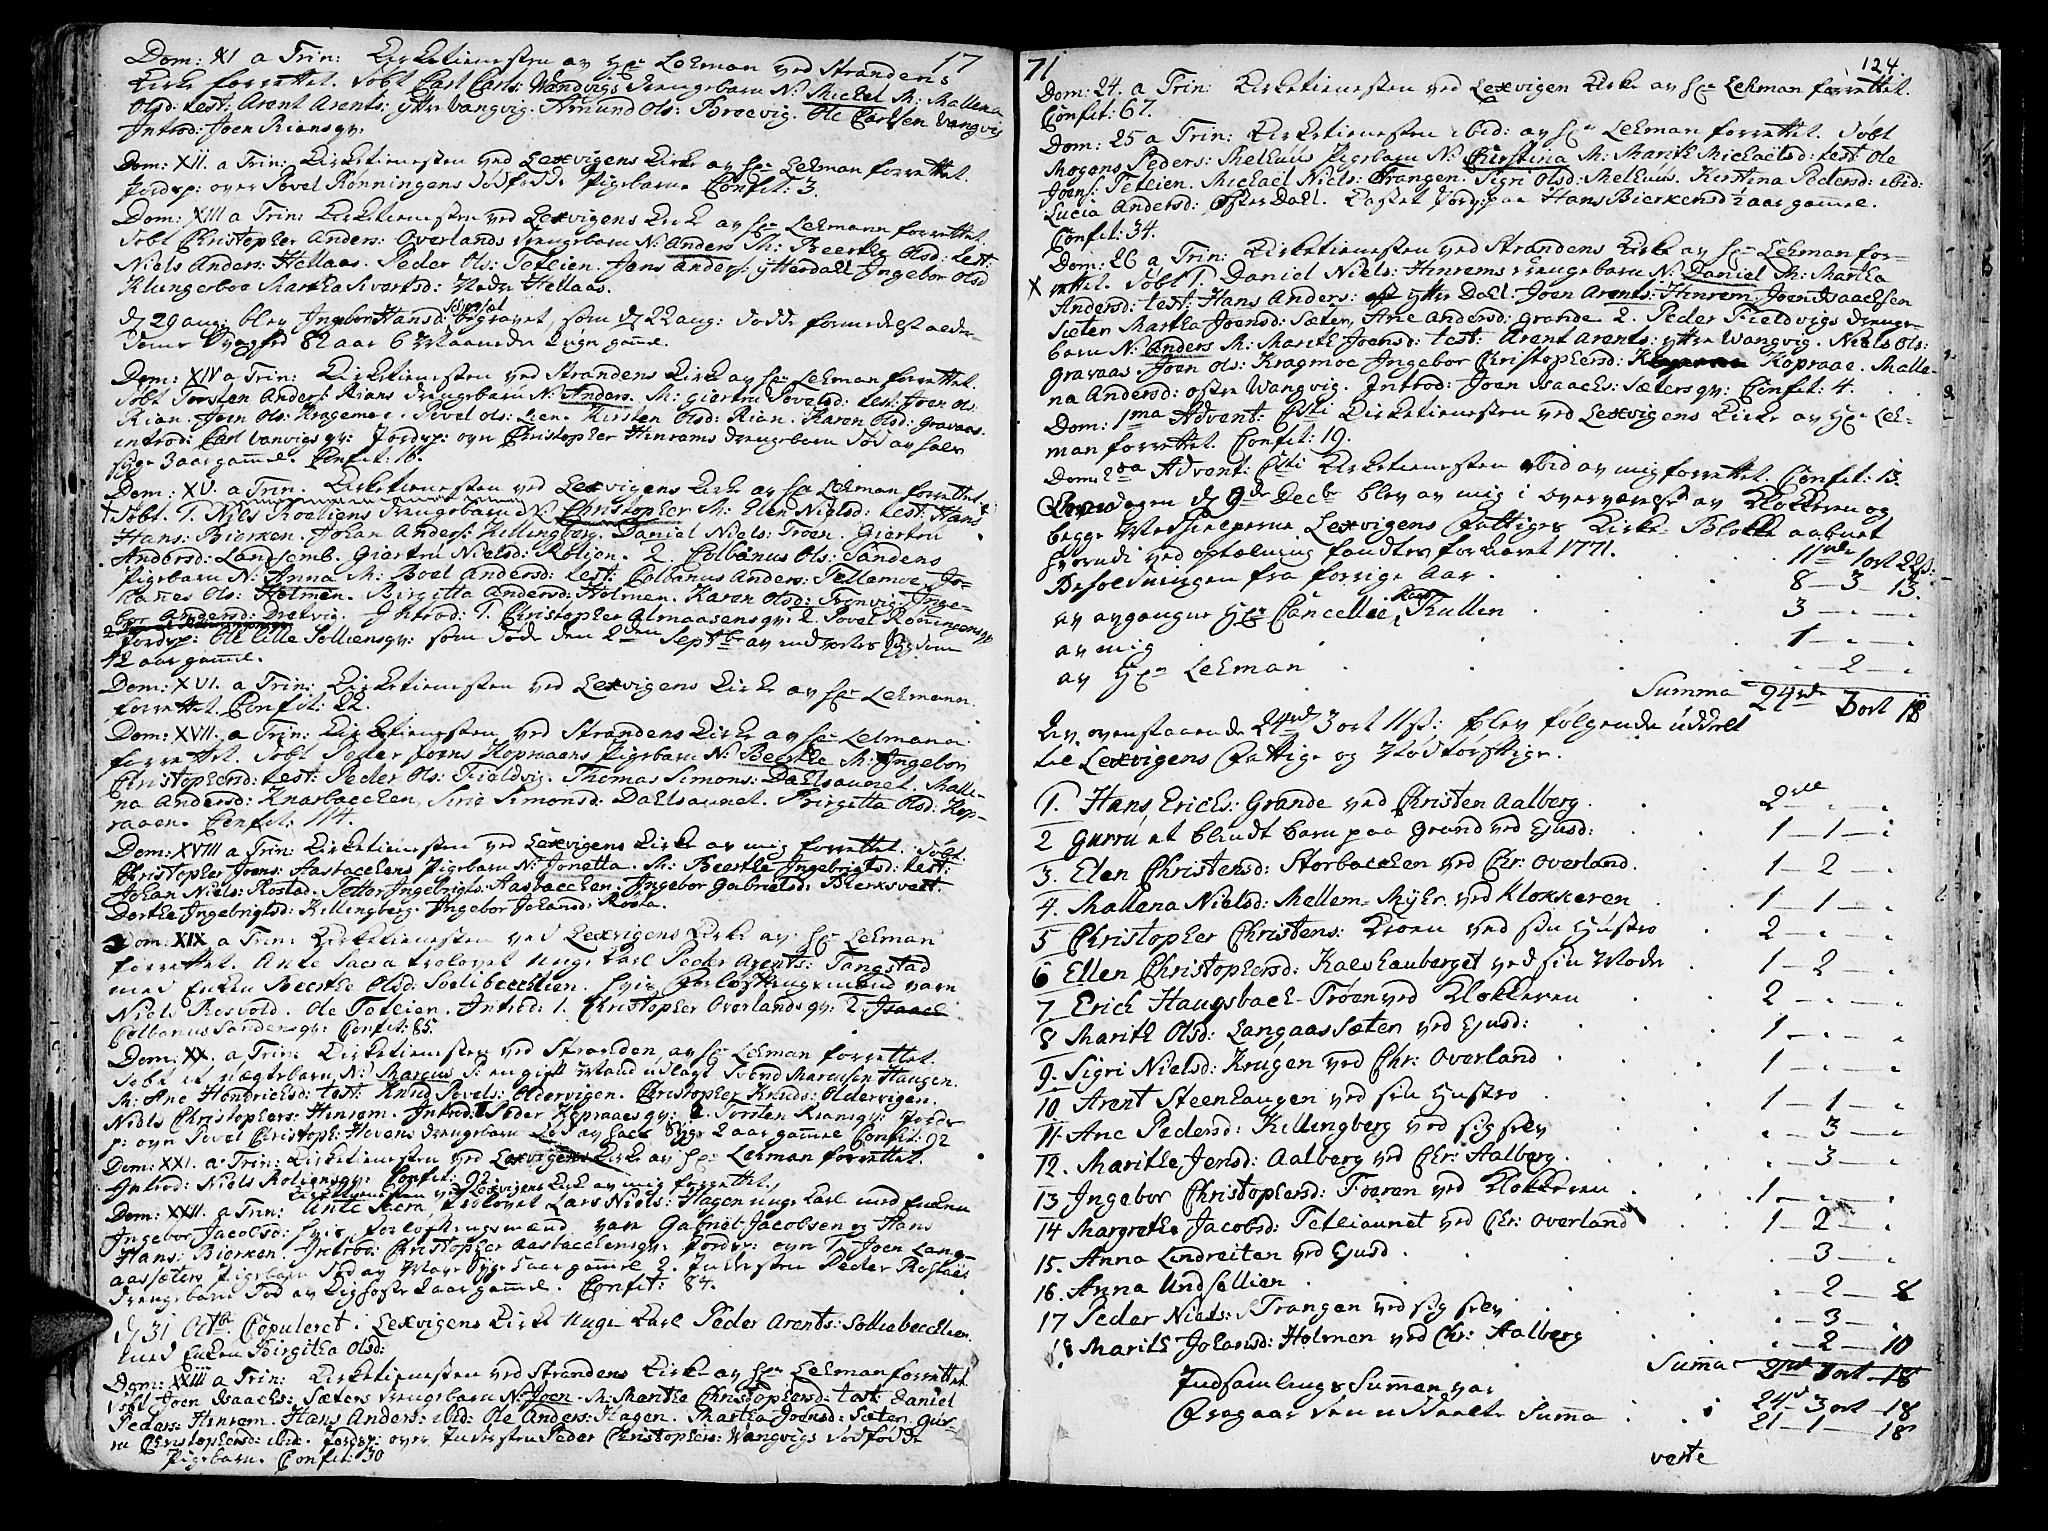 17
Dom: XI a Trin: Kirketienesten av Hr Lehman ved Strandens
Kirke forrettet. Døbt Carl Carls: Wandvigs Drengebarn N: Michel M: Mallena
Olsd: test: Arent Arents: yttr Vangvig. Amund Ols: Broevig. Ole Carlsen Vangvig
Introd: Joen Riansqv:
Dom: XII. a Trin: Kirketienesten ved Lexvigens Kirke av Hr Lehman forrettet.
Jordsp: over Povel Rønningens dødfødde Pigebarn. Confit: 3.
Dom: XIII a Trin: Kirketienesten ved Lexvigens Kirke av Hr Lehmann forrettet.
Døbt Christopher Anders: Overlands Drengebarn N: Anders M: Beerthe Olsd: test:
Niels Anders: Hellaas. Peder Ols: Tetlien. Jens Anders: ytterdahl Ingebor Olsd
Klungerboe Martha Sivertsd: Hellaas.
d 29 aug: blev Ingebor Hansd: begravet, som d 22 aug: døde formedelst alder-
doms Svaghed 82 aar 6 Maaneder gamel.
Dom: XIV a Trin: Kirketienesten ved Strandens Kirke av Hr Lehman forrettet.
Døbt Torsten Anders: Rians Drengebarn N: Anders. M: giertru Povelsd: test: Joen Ols:
Rian. Joen Ols: Kragemoe. Povel Ols: Kirsten Olsd: Rian. Karen Olsd: gravaas.
introd: Carl Vanvigsqv: Jordsp: ovr Christopher Hinrems Drengebarn død av
syge 3 aar gamel. Confit: 16.
Dom: XV. a Trin: Kirketienesten ved Lexvigens Kirke av Hr Lehman forrettet.
Døbt. 1. Niels Roeliens Drengebarn N: Christopher M: Elen Nielsd: test: Hans
Hans: Bierken. Johan Anders: Killingberg. Daniel Niels: Troen. Giertru
Andersd: Landsemb. Giertru Nielsd: Rølien. 2. Colbanus Ols: Sandens
Pigebarn N: Anna M: Boel Andersd: test: Colbanus Anders: Tellemoe. Jo-
hanes Ols: Holmen. Birgitta Andersd: Holmen. Karen Olsd: Trønvig. Inge-
bor Andersd: Dretvig. Introd: 1. Christopher Almaasensqv: 2. Povel Røningensqv
Jordsp: Ole Lille Solliensqv: som døde den 2den Septbr av
42 aar gamel.
Dom: XVI. a Trin: Kirketienesten ved Lexvigens Kirke av Hr Lehmann
forrettet. Confit: 22.
Dom: XVII. a Trin: Kirketienesten ved Strandens Kirke av Hr Lehmann
forrettet. Døbt Peder Joens Kopraaens Pigebarn N: Beerthe M: Ingebor
Christophersd: test: Peder Ols: Fieldvig. Thomas Simons: Dahlsaunet. Malle-
na Andersd: Knarbacchen, Siric Simonsd: Dahlsaunet. Birgitta Olsd: Kop-
raaen. Confit: 114.
Dom: XVIII a Trin: Kirketienesten ved Lexvigens Kirke av mig forrettet. Døbt
Christopher Joens: Aasbacchens Pigebarn N: Jonetta. M: Beerthe Ingebrigtsd: test:
Johan Niels: Rostad. Petter Ingebrigts: Aasbacchen. Ingebor Gabrielsd:
Dorthe Ingebrigtsd: Killingberg. Ingebor Johansd: Rosta.
Dom: XIX a Trin: Kirketienesten ved Lexvigens Kirke av Hr Lehman
forrettet. Ante Sacra trolovet Unge Karl Peder Arents: Tangstad
med Enken Beerthe Olsd: Soelibecchen. hvis Forløftningsmænd vare
Niels Rosvold. Ole Tetlien. Introd: 1. Christopher Overlandsqv: 2. Isaach
Colbanus Sandensqv: Confit: 85.
Dom: XX. a Trin: Kirketienesten ved Stranden av Hr Lehman forrettet.
Døbt et uægtebarn N: Marcus. Siengift Mand udlagt Svend Marcusen Haugen.
M: Ane Hendrichsd: test: Knud Povels: Oldervigen. Christopher Knuds: Oldervigen.
Niels Christophers: Hinrem. Introd: 1. Peder Kopraaesqv: 2. Torsten Riansqv: Jords-
p: ovr Povel Christoph: Hovens Drengebarn død av Syge 2 aar gamel Confit: 92
Dom: XXI. a Trin: Kirketienesten ved Lexvigens Kirke av Hr Lehman forrettet.
Introd: Niels Roliensqv: Confit: 92.
Kirketienesten ved Lexvigens Kirk av mig forrettet.
Dom: XXII. a Trin: Ante Sacra, trolovet Lars Niels: Hagen unge Karl med Enken
Ingebor Jacobsd: hvis forlofningsmænd vare Gabriel Jacobsen og Hans
Hans: Bierken. Introd: Christopher Aasbacchensqv: Jordsp: ovr 1. Joen Lang-
aassæters Pigebarn død av Syge aar gamel 2. Peder Rostads
Drengebarn død av Kighoste aar gamel. Confit: 84.
d 31 Octbr. Copuleret. Lexvigens Kirke Unge Karl Peder Arents: Sollibecchen
med Enken Birgitha Olsd:
Dom: XXIII a Trin: Kirketienesten ved Strandens Kirke av Hr Lehman forrettet
Døbt Joen Isaachs: Sæters Drengebarn N: Joen. M: Marithe Christophersd: test: Daniel
Peders: Hinrem. Hans Anders: ibid: Ole Anders: Hagen. Martha Joensd: Sæter. Gur-
ru Christophersd: ibid. Jordsp: over Peder Christophers: Wangvigs dødfødde
Pigebarn. Confit: 30
71
124.
Dom: 24. a Trin: Kirketienesten ved Lexvigen Kirke av Hr Lehman forrettet.
Confit: 67.
Dom: 25 a Trin: Kirketienesten ibid: av Hr Lehman forrettet. Døbt
Mogens Peders: Melhuus Pigebarn N: Christina M: Marith Michaelsd: test: Ole
Joens: Tetlien. Michael Niels: Trangen. Sigri Olsd: Melhuus. Kirstina Pedersd: ibid:
Lucia Andersd: Øster Dahl. Kastet Jord: paa Hans Bierkensd: aar gamel.
Confit: 34.
Dom: 26 a Trin: Kirketienesten ved Strandens Kirke av Hr Lehman for-
X rettet. Døbt 1. Daniel Niels: Hinrems Drengebarn N: Daniel M: Martha
Andersd: test: Hans Anders: ytter Dahl. Joen Arents: Hinrem. Joen Isaachsen
Sæter. Martha Joensd: Sæter, Ane Andersd: Grande 2. Peder Fieldvigs Drenge-
barn N: Anders M: Marith Joensd: test: Arent Arents: yttre Wangvig. Niels Ols:
Gravaas. Joen Ols: Kragmoe Ingebor Christophersd: Kopraae. Malle-
na Andersd: østre Wangvig. Introd: Joen Isaachs: Sætersqv: Confit: 4.
Dom: 1ma Advent: Chsti Kirketienesten ved Lexvigens Kirke av Hr Leh-
man forrettet. Confit: 19.
Dom: 2da Advent: Chsti Kirketienesten ibid av mig forrettet. Confit: 13.
d 9de Decbr blev av mig i overværelse av Klokkeren og
begge Medhielperne Lexvigens Fattiges Kirke-Blokke aabnet
hvorudi ved optælning fandtes for aaret 1771. 11rdr 1ort 22s.
Beholdningen fra forrige Aar . 8 – 3 – 13.
av avgangne Hr Cancellie Raad Kullen . 3 – „ – „
av mig . 1 – „ – „
av Hr Lehman . „ – 2 – „
Summa 24rdr 3 ort 18
Av ovenstaaende 24rd 3 ort 11s; blev følgende uddelt
til Lexvigens Fattige og Nødtørftige.
1. Hans Erichs: Grande ved Christen Aalberg . 2rdr „ – „
2 Gurru et blindt barn paa Grand ved Ejusd: 1 – 1 – „
3. Elen Christensd: Storbacchen ved Chr: Overland. 1 – 2 – „
4. Mallena Nielsd: Mellem-Myhr ved Klokkeren 1 – 1 – „
5 Christopher Christens: Kroen ved sin Hustro 2 – „ – „
6 Ellen Christophersd: Kaeshauberget ved sin Moder 1 – 2 – „
7 Erich Haugsbach-Trøen ved Klokkeren 2 – „ – „
8 Marith Olsd: Langaas Sæter ved Ejusd: 1 – „ – „
9. Sigri Nielsd: Krugen ved Chr: Overland 1 – „ – „
10 Arent Steenhaugen ved sin Hustro 1 – 1 – „
11. Ane Pedersd: Killingberg ved sig selv „ – 3 – „
12. Marithe Jensd: Aalberg ved Chr: Aalberg. „ – 3 – „
13 Ingebor Christophersd: Foeren ved Klokkeren 1 – „ – „
14 Margrethe Jacobsd: Tetliaunet ved Chr: Overland 1 – 2 – „
15. Anna Lindreiten ved Ejusd . „ 3 – „
16. Anna Undsellien . „ – 2 – 8
17 Peder Niels: Trangen ved sig selv . „ – 3 – „
18 Marith Johansd: Holmen ved Chr: Aalberg „ – 2 – 10
Summa 21rdr 1ort – 18
Indsamlings Summen var 24rd 3 ort – 18
Fragaar den uddeelte Summa 21 – 1 – 18
verte